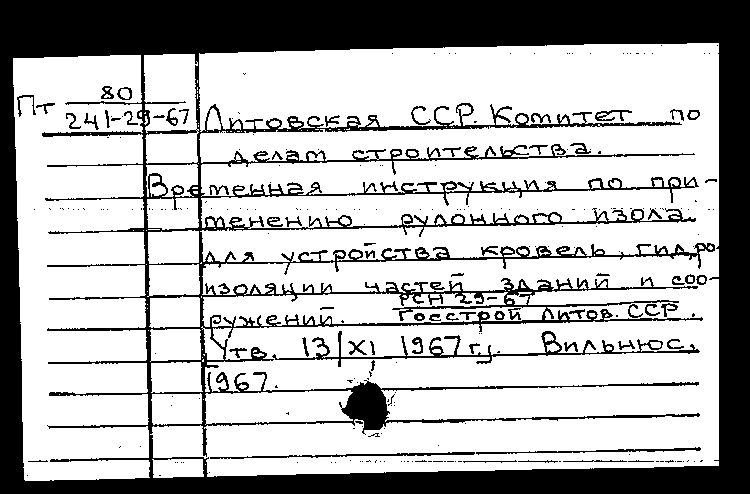 Пт 80
241-29-67
Литовская ССР. Комитет по
делам строительства.
Временная инструкция по при-
менению рулонного изола
для устройства кровель, гидро-
изоляции частей зданий и соо-
РСН 29-67
ружений. Госстрой Литов. ССР.
Утв. 13/XI 1967 г. Вильнюс,
1967.